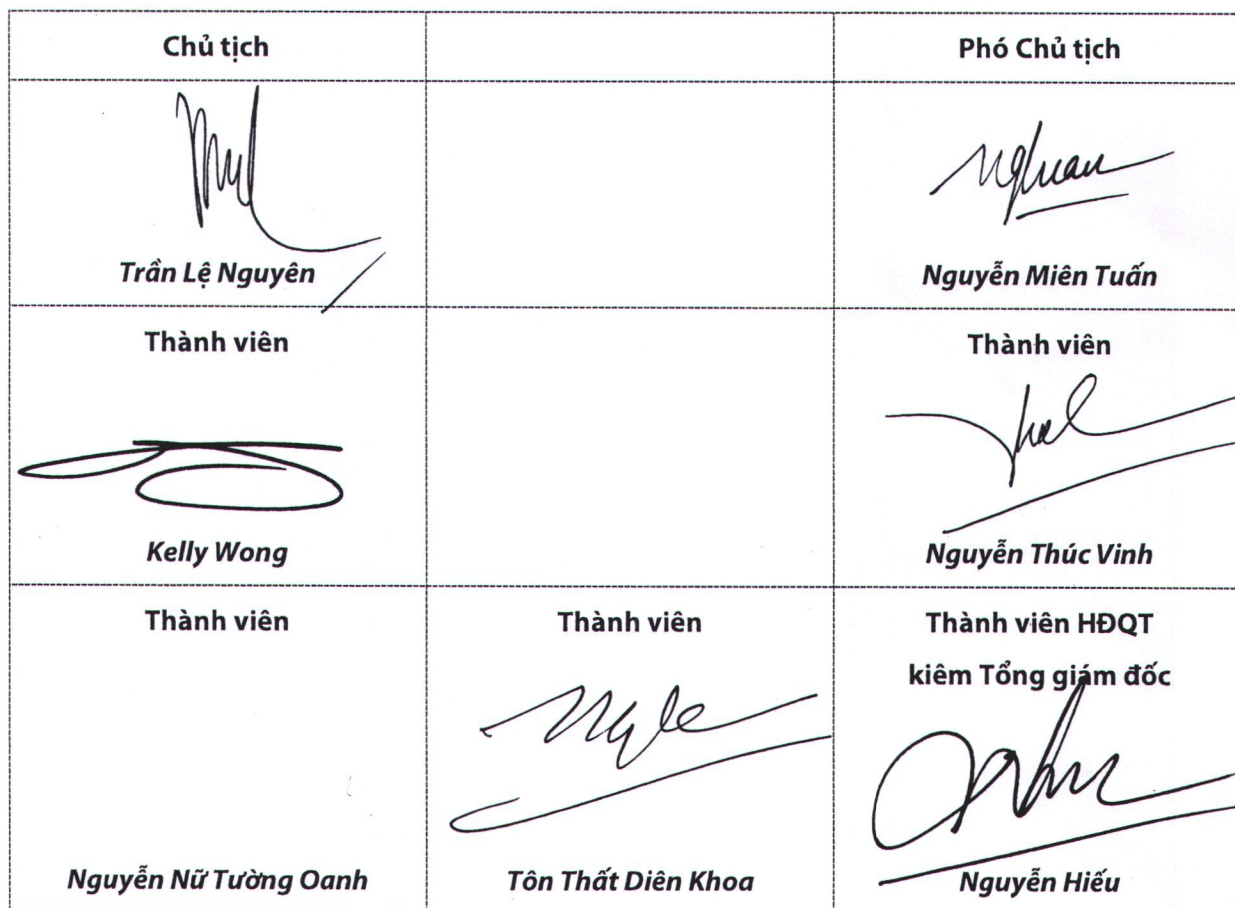 Chủ tịch
Phó Chủ tịch
Trần Lệ Nguyên
Nguyễn Miên Tuấn
Thành viên
Thành viên
Kelly Wong
Nguyễn Thúc Vinh
Thành viên
Thành viên
Thành viên HĐQT
kiêm Tổng giám đốc
Nguyễn Nữ Tường Oanh
Tôn Thất Diên Khoa
Nguyễn Hiếu